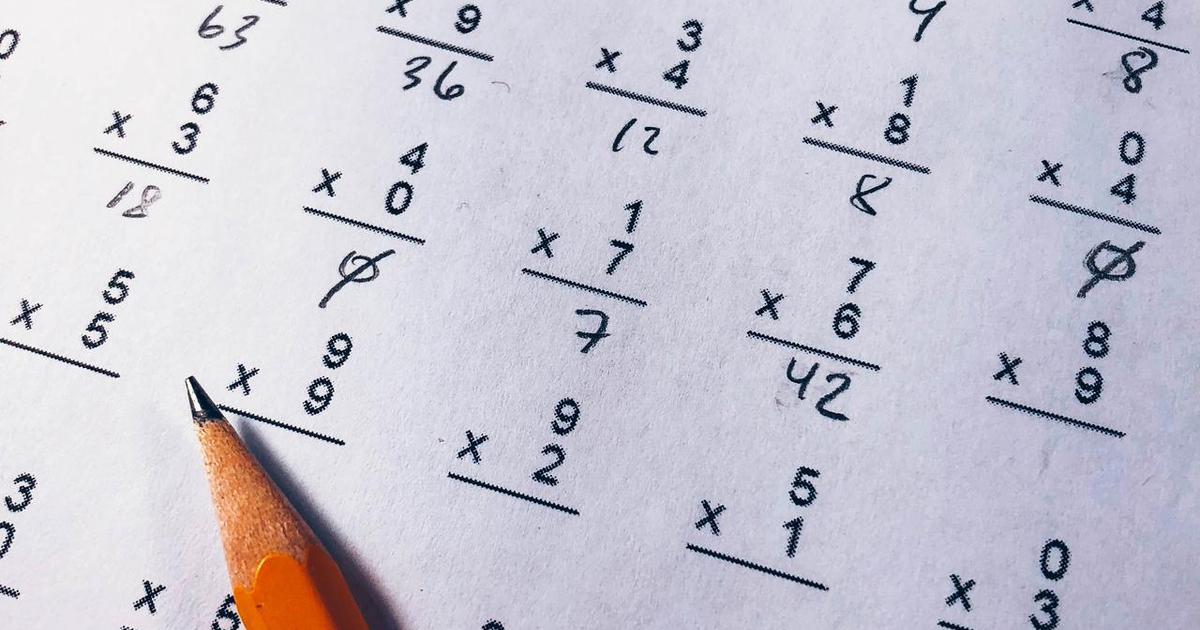 63
x 9
36
3
x 4
12
4
8
6
x 3
18
4
x 0
0
1
x 8
8
0
x 4
0
5
x 5
1
x 7
7
7
x 6
42
8
x 9
9
x 9
9
x 2
5
x 1
3
0
x
0
x 3